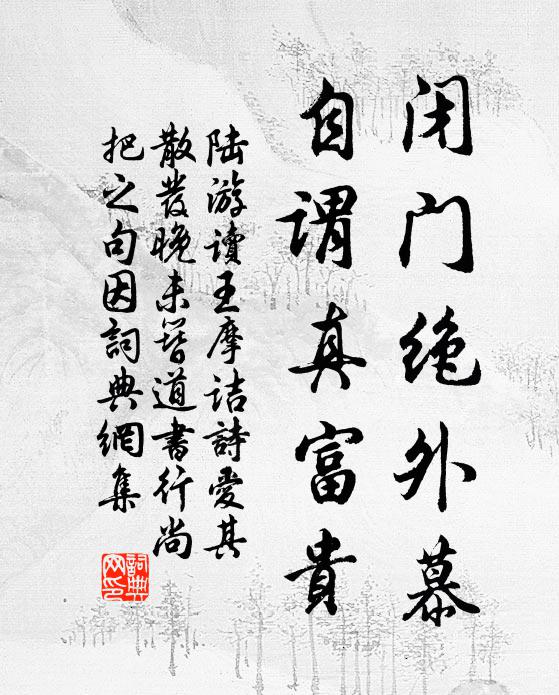 闭门绝外慕
自谓真富贵
陆游读王摩诘詩愛其
散發晚未簪道書行尚
把之句因詞典網集
詞典网印